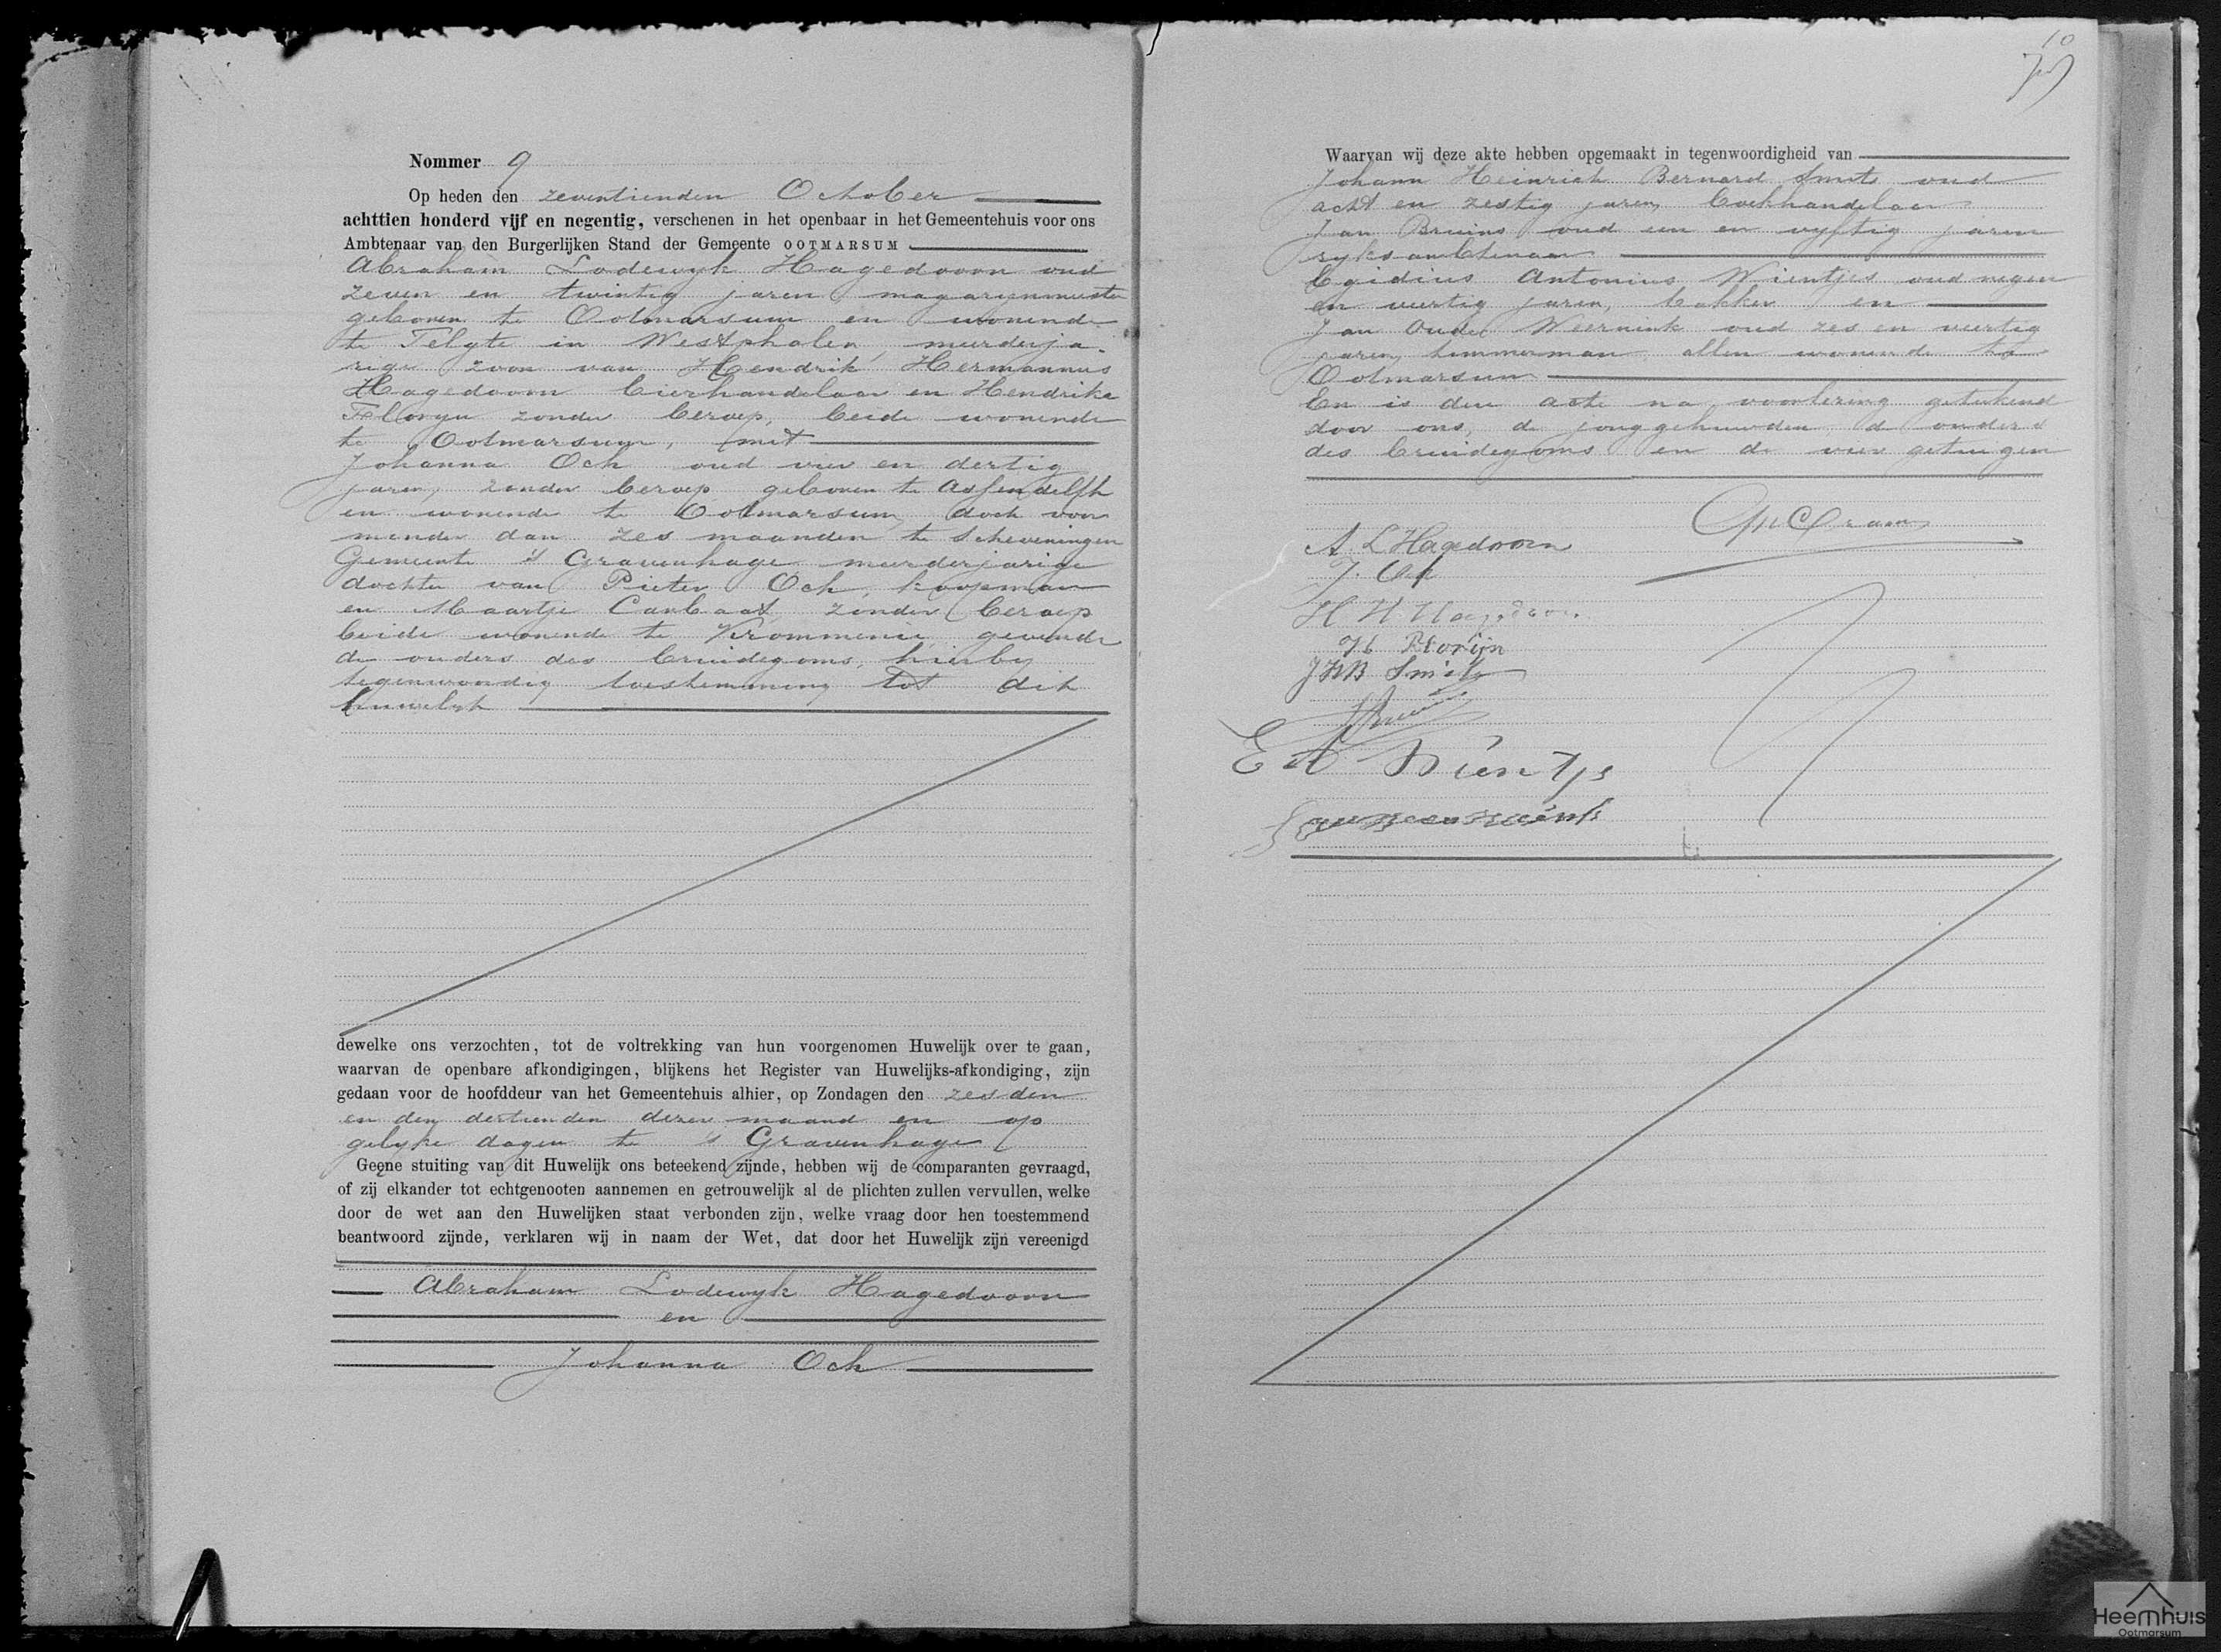 Nommer 9
Op heden den zeventienden October
achttien honderd vijf en negentig, verschenen in het openbaar in het Gemeentehuis voor ons
Ambtenaar van den Burgerlijken Stand der Gemeente OOTMARSUM
Abraham Lodewyk Hagedoorn oud
zeven en twintig jaren magazynmeester
geboren te Ootmarsum en wonende
te Telgte in Westphalen, meerderja-
rige zoon van Hendrik Hermannus
Hagedoorn bierhandelaar en Hendrike
Floryn zonder beroep, beide wonende
te Ootmarsum, met
Johanna Och oud vier en dertig
jaren, zonder beroep geboren te Assendelft
en wonende te Ootmarsum, doch voor
minder dan zes maanden te Scheveningen
Gemeente 's Gravenhage meerderjarige
dochter van Pieter Och, koopman
en Maartje Carbaat, zonder beroep
beide wonende te Krommenie, gevende
de ouders des bruidegoms, hierby
tegenwoordig toestemming tot dit
huwelyk
dewelke ons verzochten, tot de voltrekking van hun voorgenomen Huwelijk over te gaan,
waarvan de openbare afkondigingen, blijkens het Register van Huwelijks-afkondiging, zijn
gedaan voor de hoofddeur van het Gemeentehuis alhier, op Zondagen den zesden
en den dertienden dezer maand en op
gelyke dagen te 's Gravenhage
Geene stuiting van dit Huwelijk ons beteekend zijnde, hebben wij de comparanten gevraagd,
of zij elkander tot echtgenooten aannemen en getrouwelijk al de plichten zullen vervullen, welke
door de wet aan den Huwelijken staat verbonden zijn, welke vraag door hen toestemmend
beantwoord zijnde, verklaren wij in naam der Wet, dat door het Huwelijk zijn vereenigd
Abraham Lodewyk Hagedoorn
en
Johanna Och
10
Waarvan wij deze akte hebben opgemaakt in tegenwoordigheid van
Johann Heinrich Bernard Smits oud
acht en zestig jaren, boekhandelaar
Jan Bruins oud een en vyftig jaren
ryksambtenaar
Egidius Antonius Wientjes oud negen
en veertig jaren, bakker en
Jan Oude Weernink oud zes en veertig
jaren, timmerman, allen wonende te
Ootmarsum
En is deze acte na voorlezing geteekend
door ons, de jonggehuwden, de ouders
des bruidegoms en de vier getuigen
A. L Hagedoorn
J. Och
H H Hagedoorn
H Florijn
JHB Smits
JBruins
E A Wientjes
Heemhuis
Ootmarsum